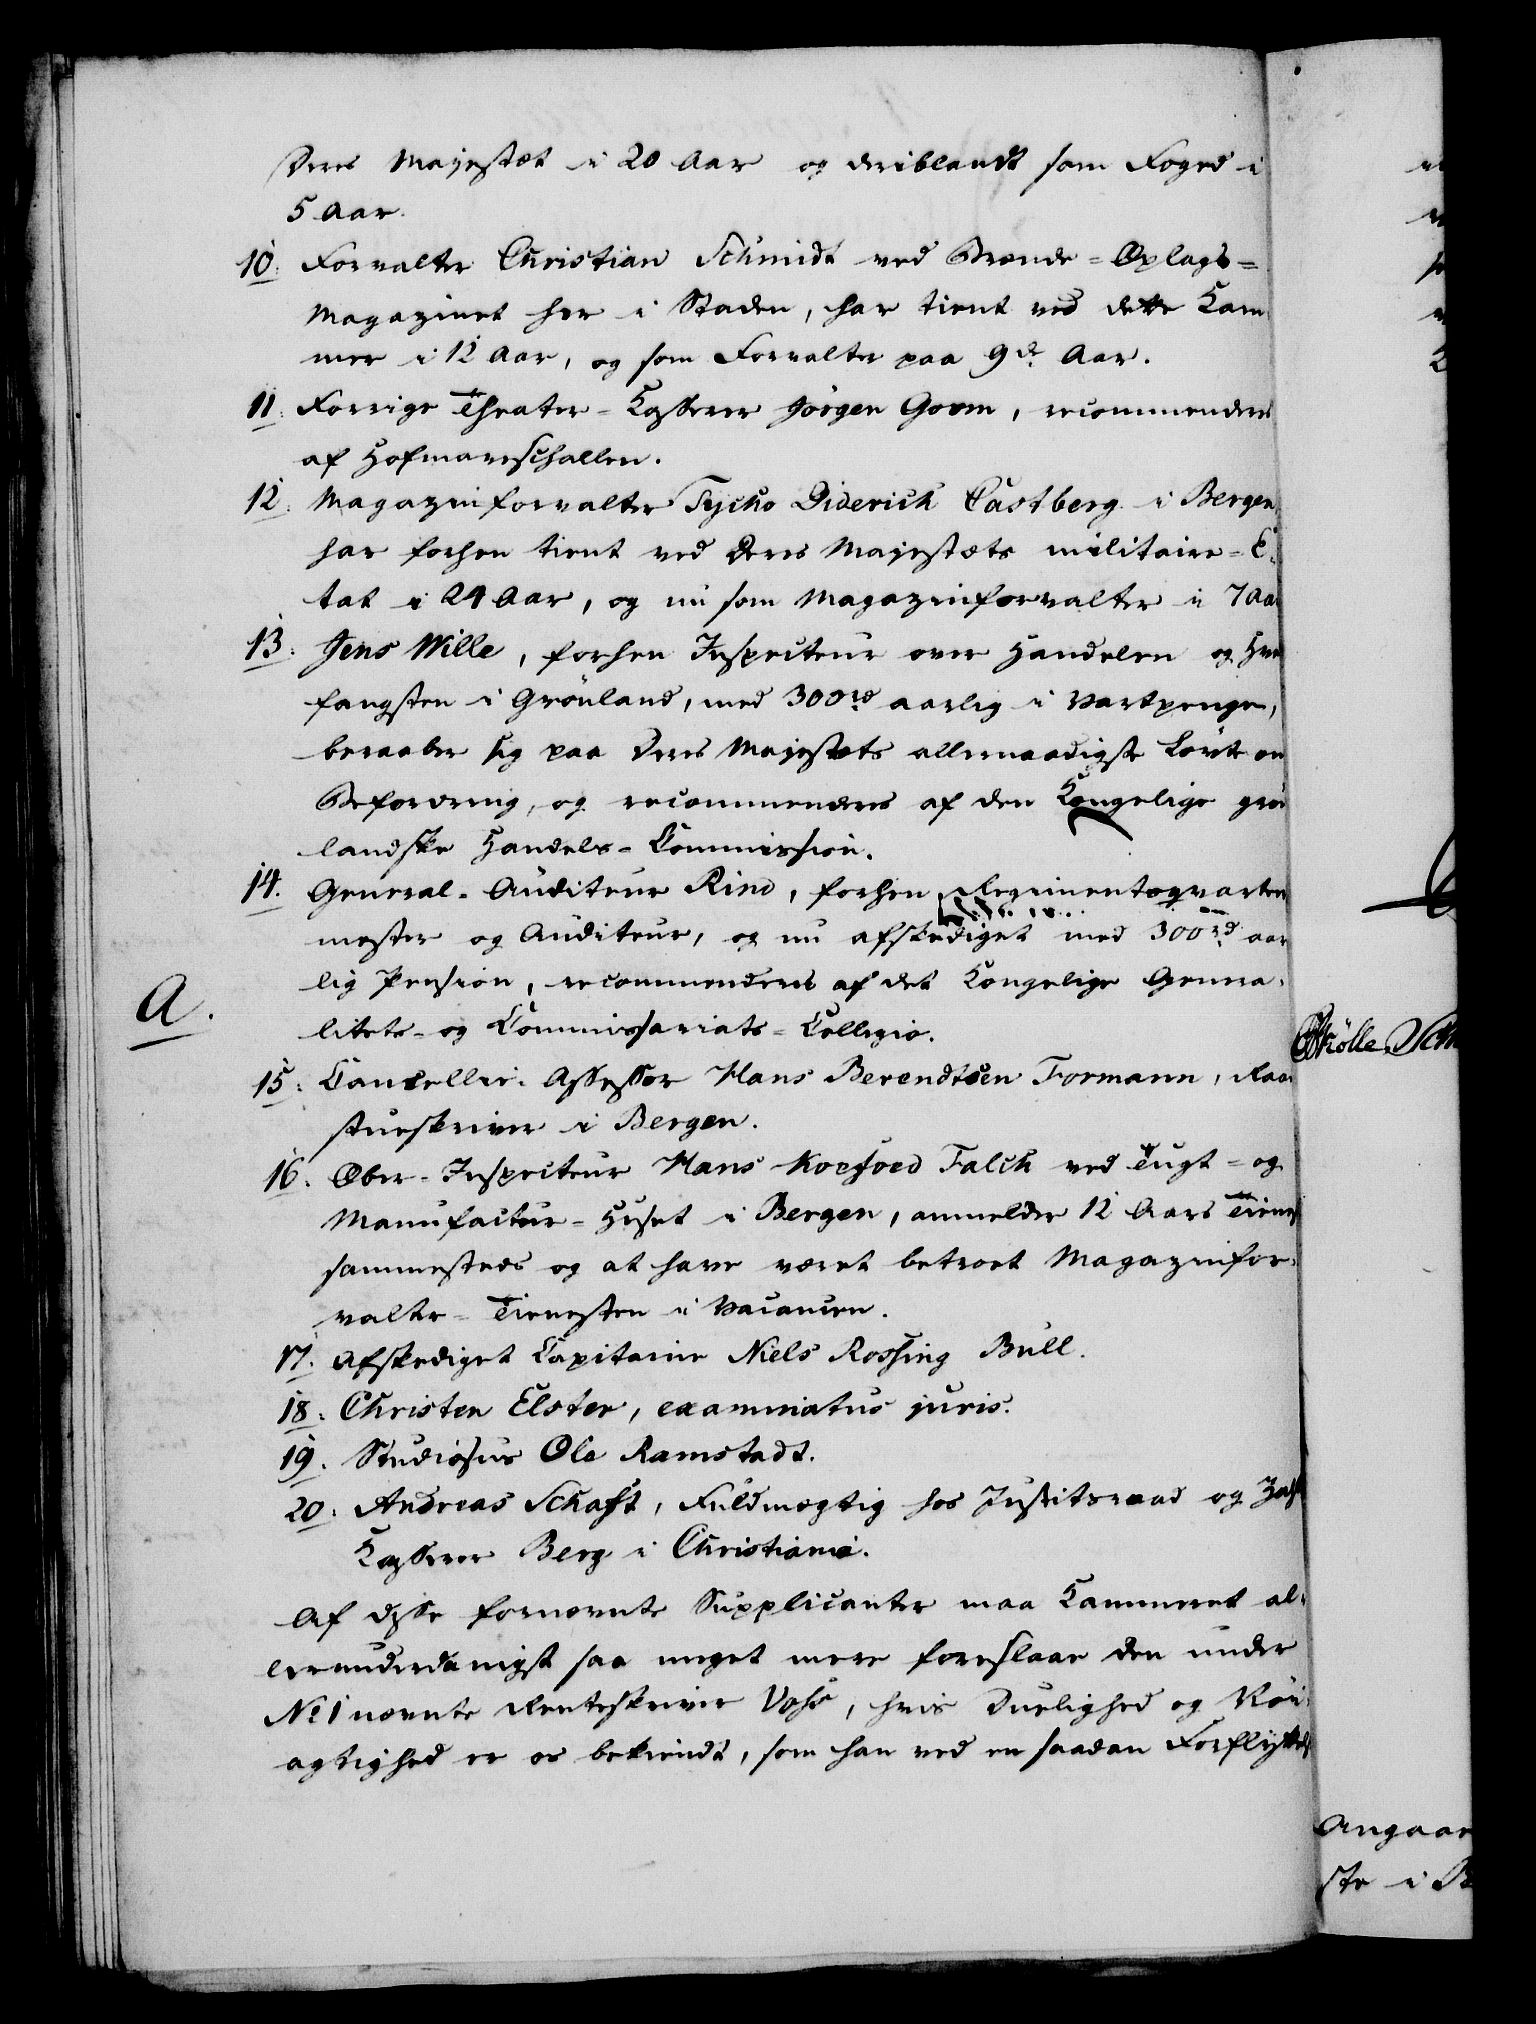 Deres Majestæt i 20 Aar og deriblandt som Foged i
5 Aar.
10. Forvalter Christian Schmidt ved Brænde-Oplags-
Magazinet her i Staden, har tient ved dette Kam
mer i 12 Aar, og som Forvalter paa 9de Aar.
11. Forrige Theater-Kasserer Jörgen Goom, recommenderes
af Hofmarschallen.
12. Magazinforvalter Tycho Diderich Castberg i Bergen,
har forhen tient ved Deres Majestæts militaire-E-
tat i 24 Aar, og nu som Magazinforvalter i 7 Aar
13. Jens Wille, forhen Inspecteur over Handelen og Hval
fangsten i Grönland, med 300 rd aarlig i Vartpenge,
beraaber sig paa Deres Majestæts allernaadigste Löfte om
Befordring, og recommenderes af den Kongelige grön
landske Handels-Commission.
14. General-Auditeur Rind, forhen Regimentsqvarteer
mester og Auditeur, og nu afskediget med 300 rd aar
lig Pension, recommenderes af det Kongelige Genera-
litets- og Commissariats-Collegio.
A.
15. Cancellie-Assessor Hans Berendtsen Formann, Raad
stueskriver i Bergen.
16. Ober-Inspecteur Hans Koefoed Falch ved Tugt- og
Manufactur-Huset i Bergen, anmelder 12 Aars Tieneste
sammesteds og at have været betroet Magazinfor-
valter-Tienesten i Vacancen.
17. Afskediget Capitaine Niels Rossing Bull.
18. Christen Elster, examinatus juris.
19. Studiosus Ole Ramstadt.
20. Andreas Schaft, Fuldmægtig hos Justitsraad og
Kasserer Berg i Christiania.
Af disse fornævnte Supplicanter maa Kammeret al-
lerunderdanigst saa meget mere foreslaae den under
No 1 nævnte Renteskriver Vohs, hvis Duelighed og Nöi-
agtighed er os bekiendt, som han ved en saadan Forflyttelse
Angaae
ste i B